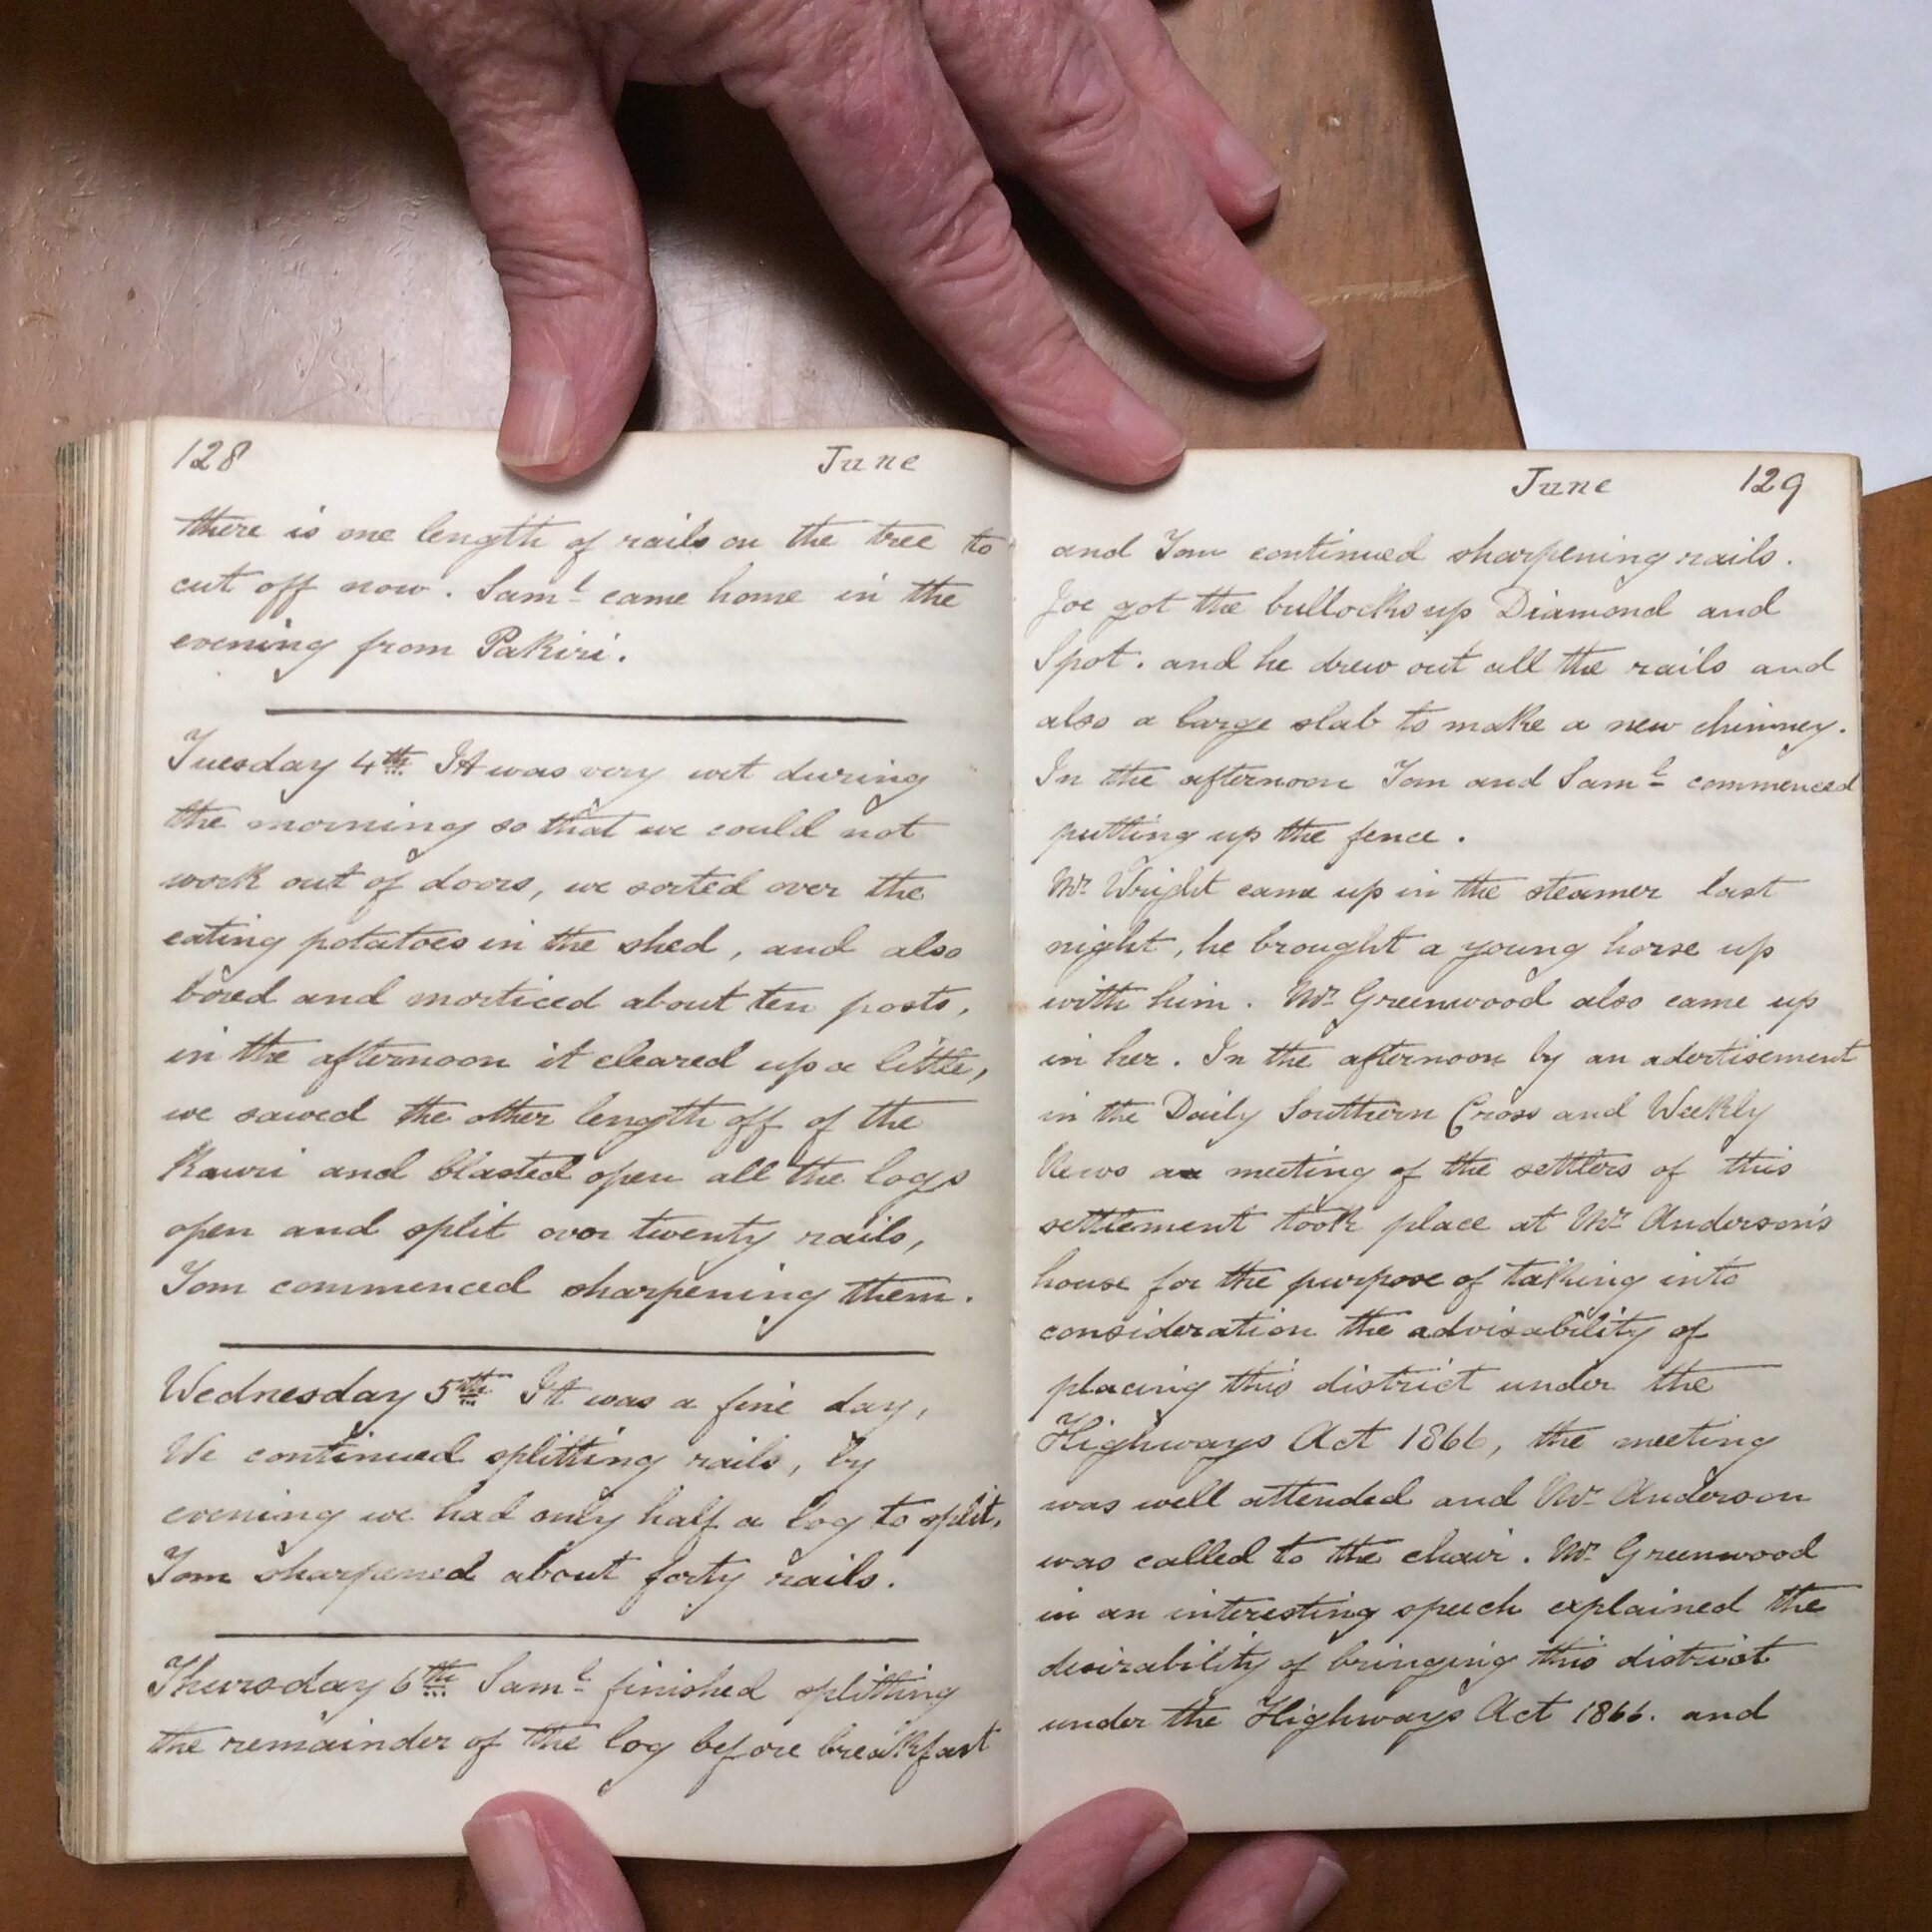 128 June
there is one length of rails on the tree to
cut off now. Saml came home in the
evening from Pakiri.
Tuesday 4th It was very wet during
the morning so that we could not
work out of doors, we sorted over the
eating potatoes in the shed, and also
bored and morticed about ten posts,
in the afternoon it cleared up a little,
we sawed the other length off of the
Kauri and blasted open all the logs
open and split over twenty rails,
Tom commenced sharpening them.
Wednesday 5th It was a fine day,
We continued splitting rails, by
evening we had only half a log to split,
Tom sharpened about forty rails.
Thursday 6th Saml finished splitting
the remainder of the log before breakfast
June 129
and Tom continued sharpening rails.
Joe got the bullocks up Diamond and
Spot. and he drew out all the rails and
also a large slab to make a new chimney.
In the afternoon Tom and Saml commenced
putting up the fence.
Mr Wright came up in the steamer last
night, he brought a young horse up
with him. Mr Greenwood also came up
in her. In the afternoon by an adertisement
in the Daily Southern Cross and Weekly
News a meeting of the settlers of this
settlement took place at Mr Anderson's
house for the purpose of taking into
consideration the advisability of
placing this district under the
Highways Act 1866, the meeting
was well attended and Mr Anderson
was called to the chair. Mr Greenwood
in an interesting speech explained the
desirability of bringing this district
under the Highways Act 1866. and